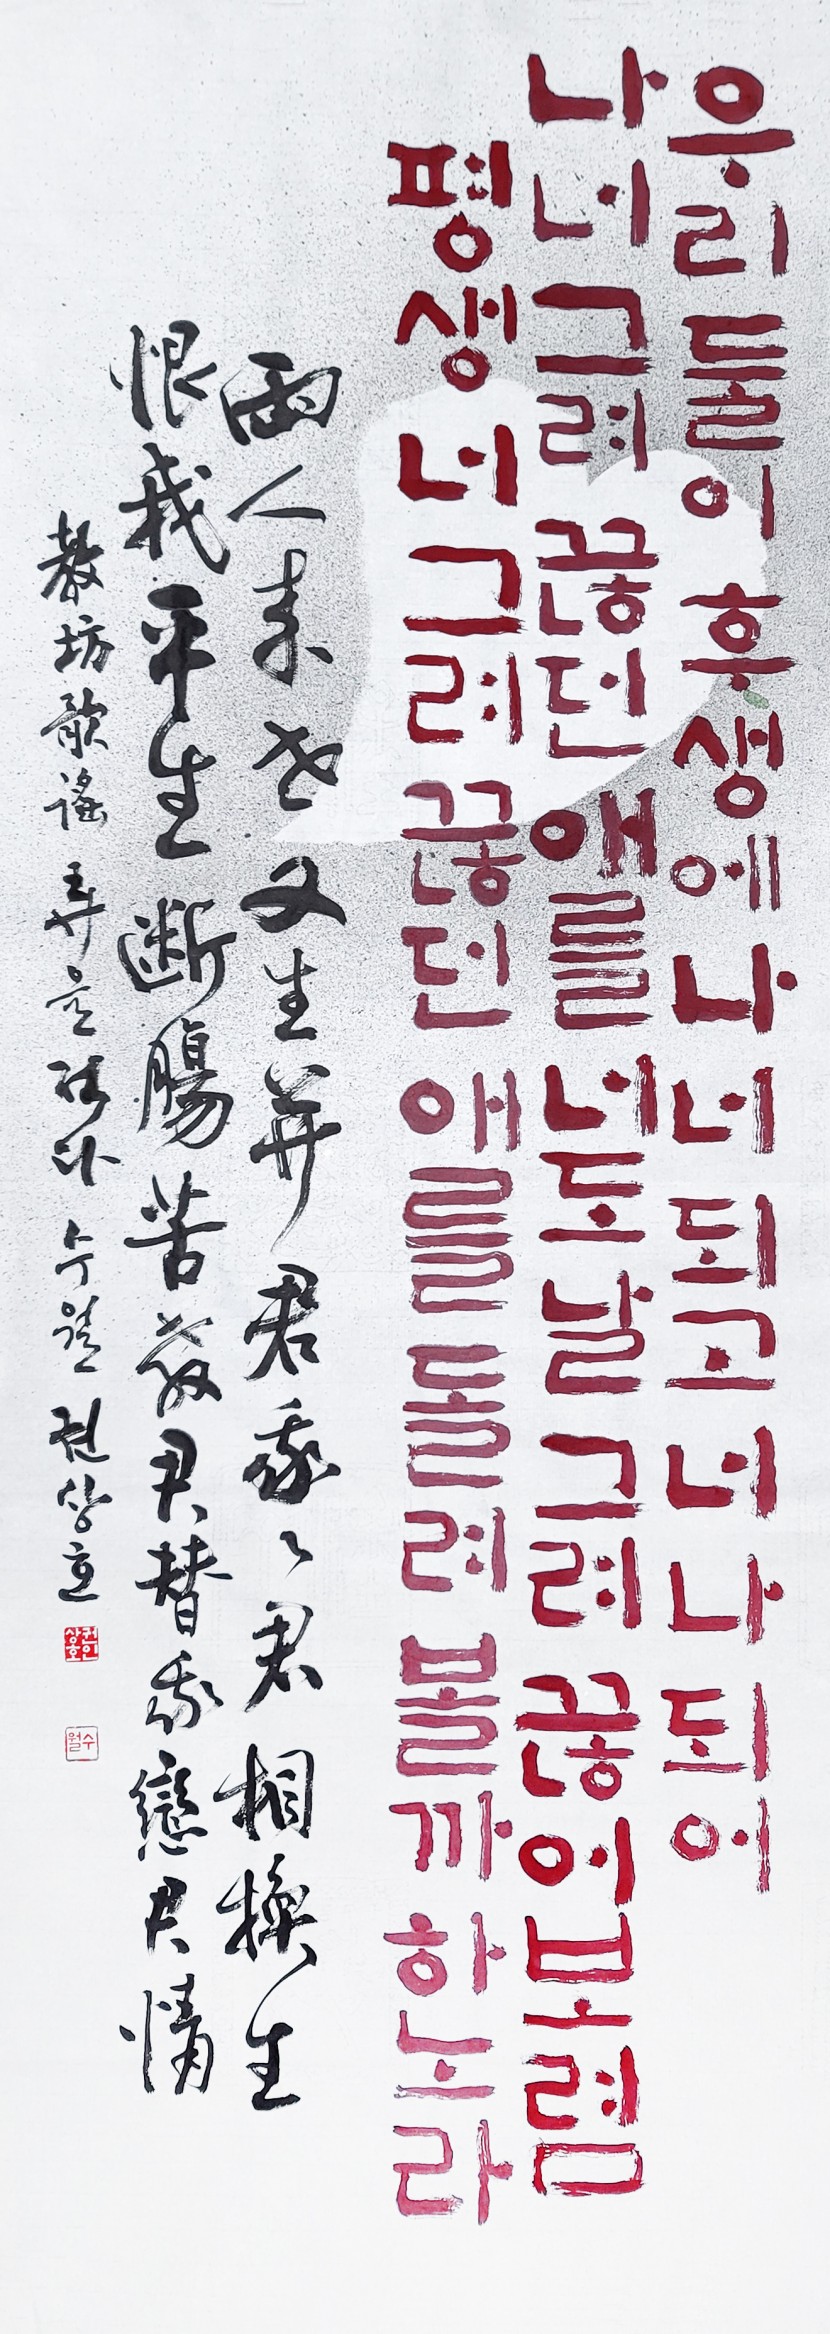 우리 둘이 후생에 나 너 되고 너 나 되어
나 너 그려 끊던 애를 너도 날 그려 끊어 보렴
평생 너 그려 끊던 애를 돌려 볼까 하노라
兩人来世又生并君我〻君相換生
恨我平生断腸苦教君替我戀君情
敎坊歌謠 弄을 적다 수월 권상호
권인상호
수월